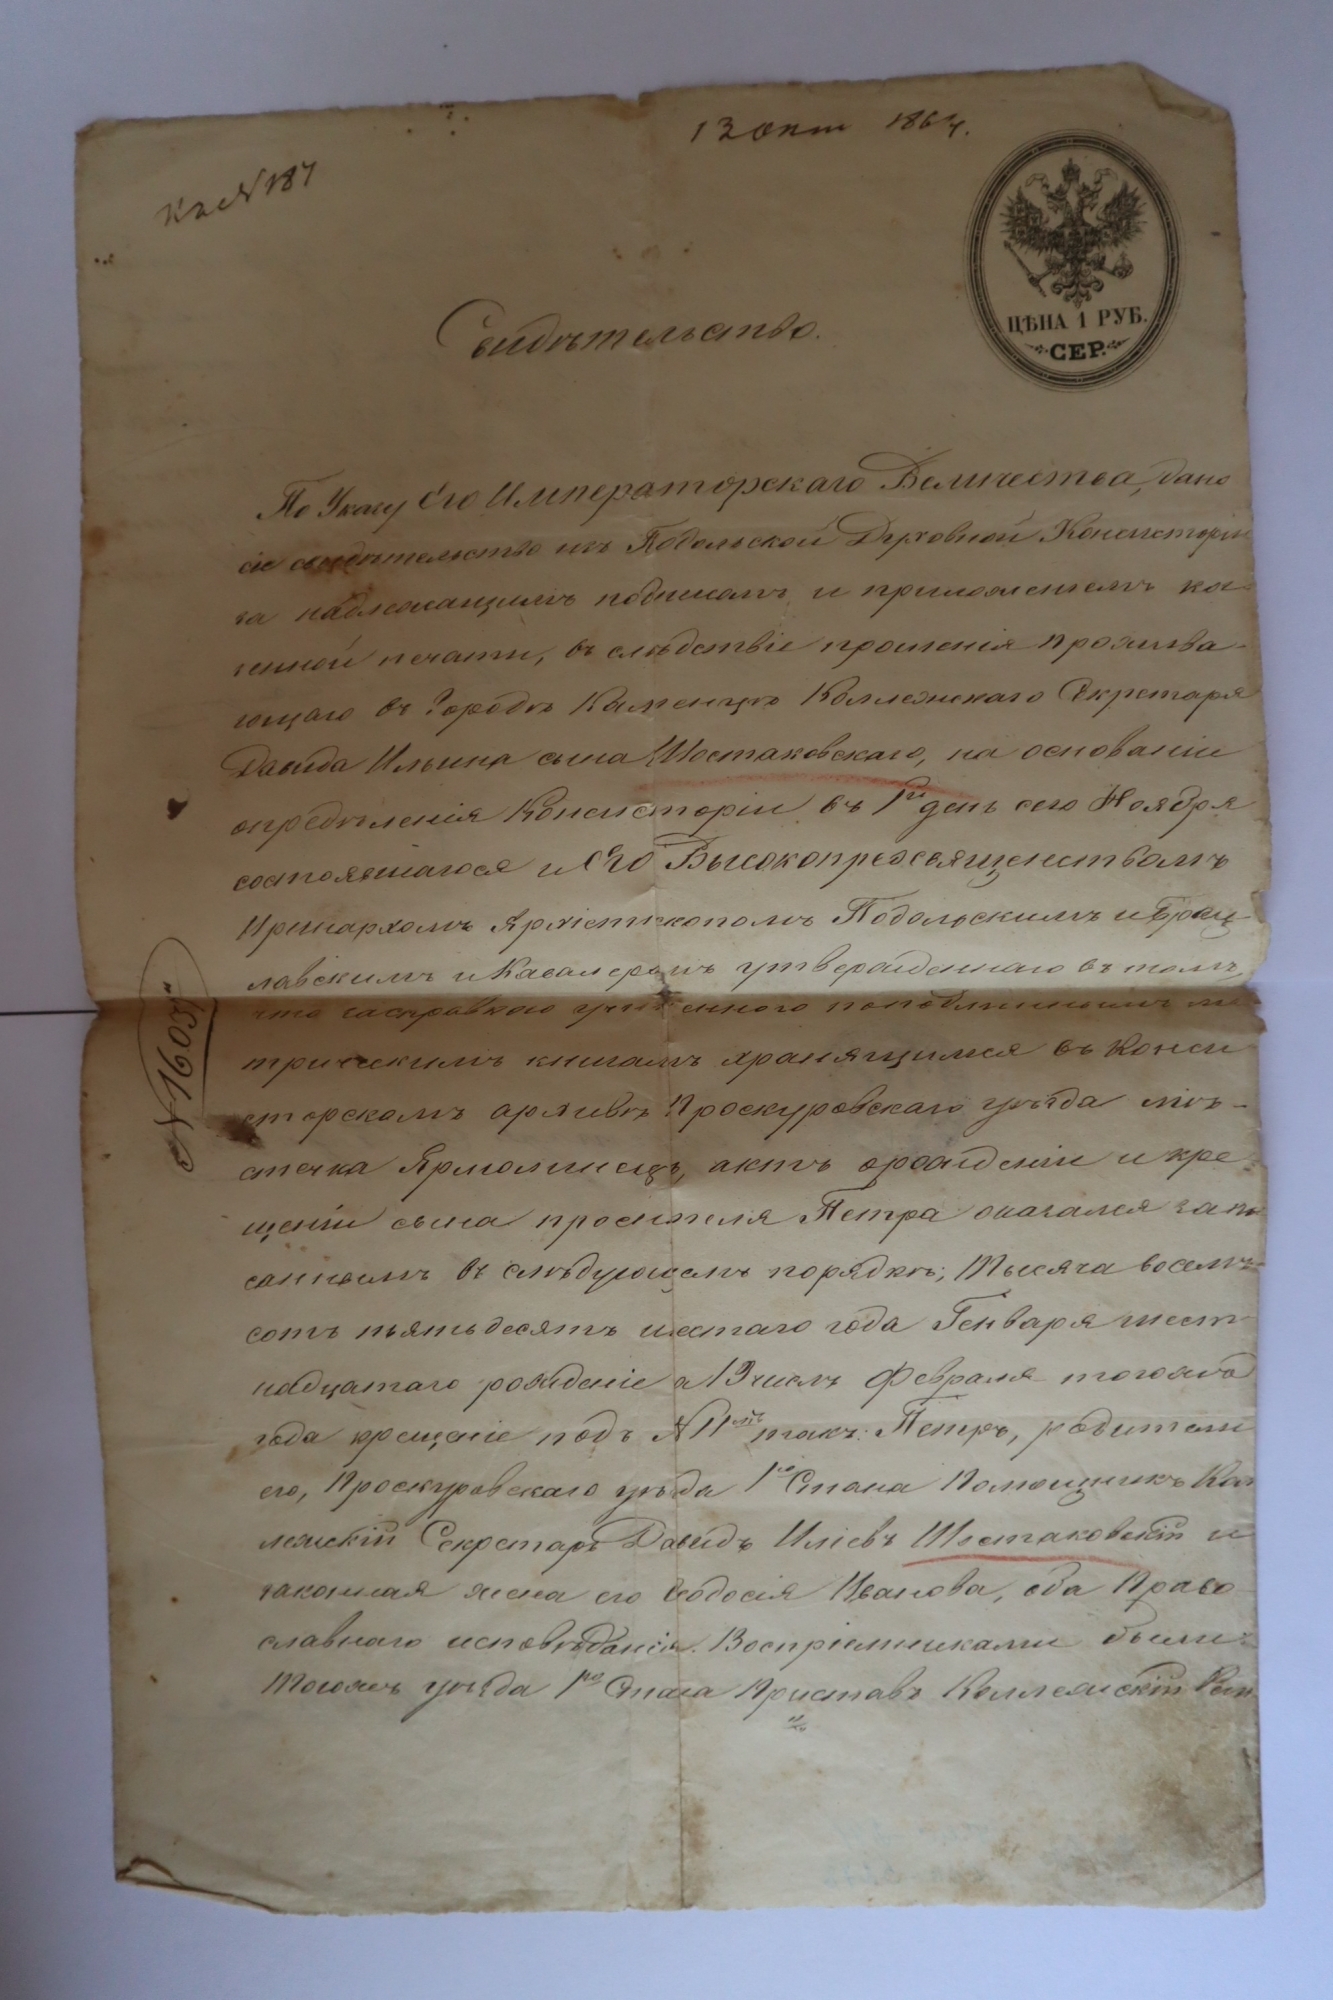 13 окт 1864.
Къ № 187
ЦѢНА 1 РУБ.
СЕР.
Свидѣтельство.
По Указу Его Императорскаго Величества, дано
сіе свидѣтельство изъ Подольской Духовной Консисторіи
за надлежащимъ подписомъ и приложеніемъ ка-
зенной печати, въ слѣдствіе прошенія прожива-
ющаго въ Городѣ Каменцѣ Коллежскаго Секретаря
Давида Ильина сына Шостаковскаго, на основаніи
опредѣленія Консисторіи въ 1й день сего Ноября
состоявшагося и Его Высокопреосвященствомъ
Иринархомъ Архіепископомъ Подольскимъ и Брац-
лавскимъ и Кавалеромъ утвержденнаго въ томъ,
что справкою учиненного по подлиннымъ ме
трическимъ книгамъ хранящимся въ Конси
сторскомъ архивѣ Проскуровскаго уѣзда мѣ-
стечка Ярмолинецъ, актъ о рожденіи и кре-
щеніи сына просителя Петра оказался запи
саннымъ въ слѣдующемъ порядкѣ; Тысяча восемь-
сотъ пятьдесятъ шестаго года Генваря шест-
надцатаго рожденіе а 19 числъ Февраля тогожъ
года крещеніе подъ № 11мъ такъ: Петръ, родители
его, Проскуровскаго уѣзда 1го Стана Помощникъ Кол
лежскій Секретарь Давидъ Иліевъ Шостаковскій и
законная жена его Ѳеодосія Иванова, оба Право
славнаго исповѣданія. Воспріемниками были:
Тогожъ уѣзда 1го Стана Приставъ Коллежскій
№ 1603